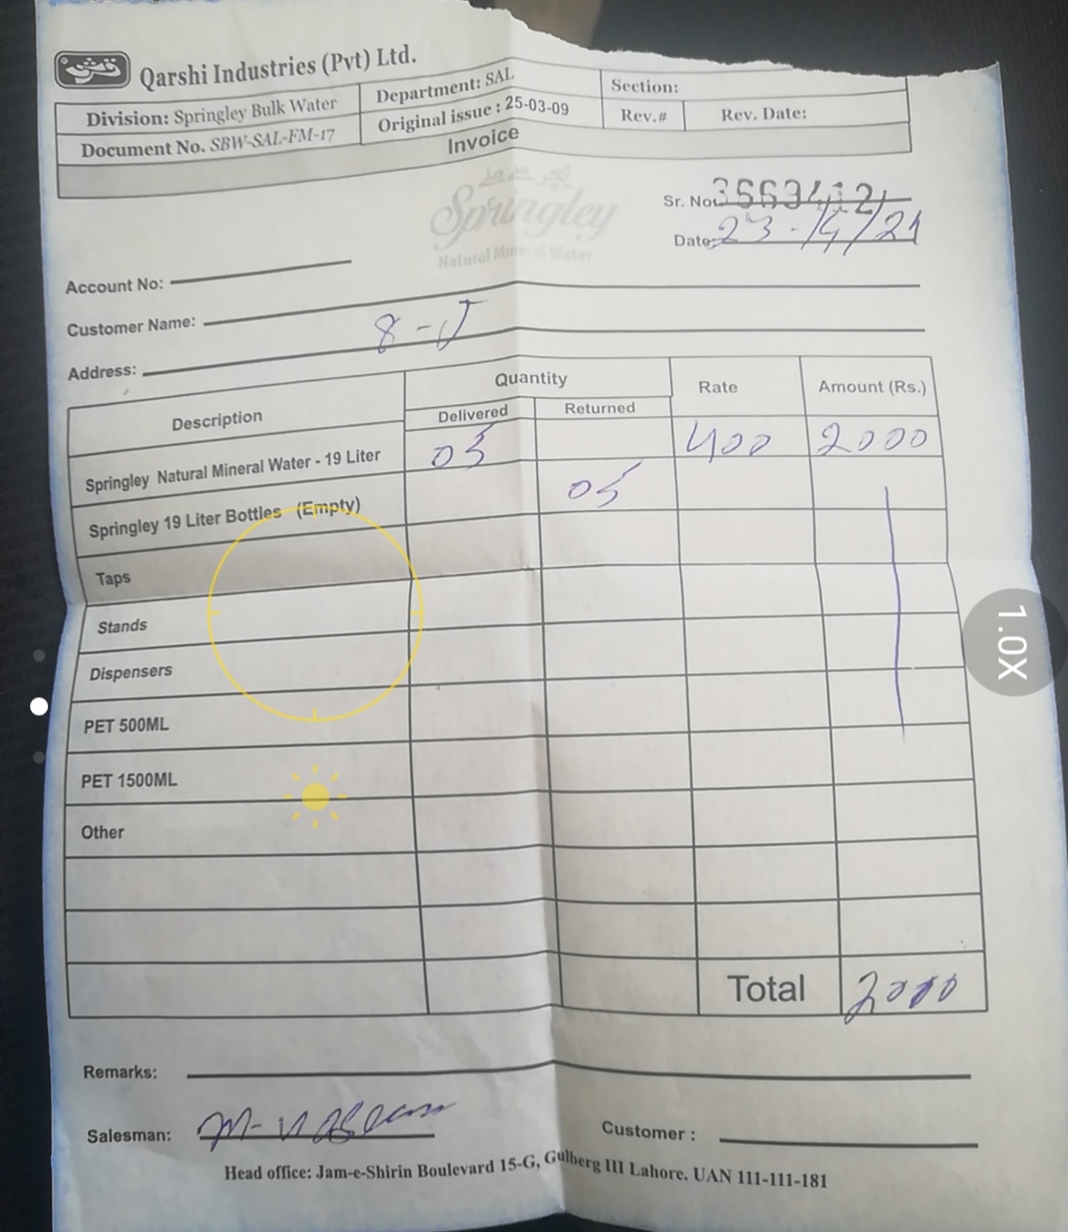 قرشی
Qarshi Industries (Pvt) Ltd.
Division: Springley Bulk Water
Department: SAL
Section:
Document No. SBW-SAL-FM-17
Original issue : 25-03-09
Rev.#
Rev. Date:
Invoice
Springley
Natural Mineral Water
Sr. No. 3663412
Date:
Account No:
Customer Name:
8-J
Address:
Description
Quantity
Rate
Amount (Rs.)
Delivered
Returned
Springley Natural Mineral Water - 19 Liter 05 400 2000
Springley 19 Liter Bottles (Empty) 05
Taps
Stands
Dispensers
PET 500ML
PET 1500ML
Other
Total 2000
Remarks:
Salesman:
Customer :
Head office: Jam-e-Shirin Boulevard 15-G, Gulberg III Lahore. UAN 111-111-181
1.0X